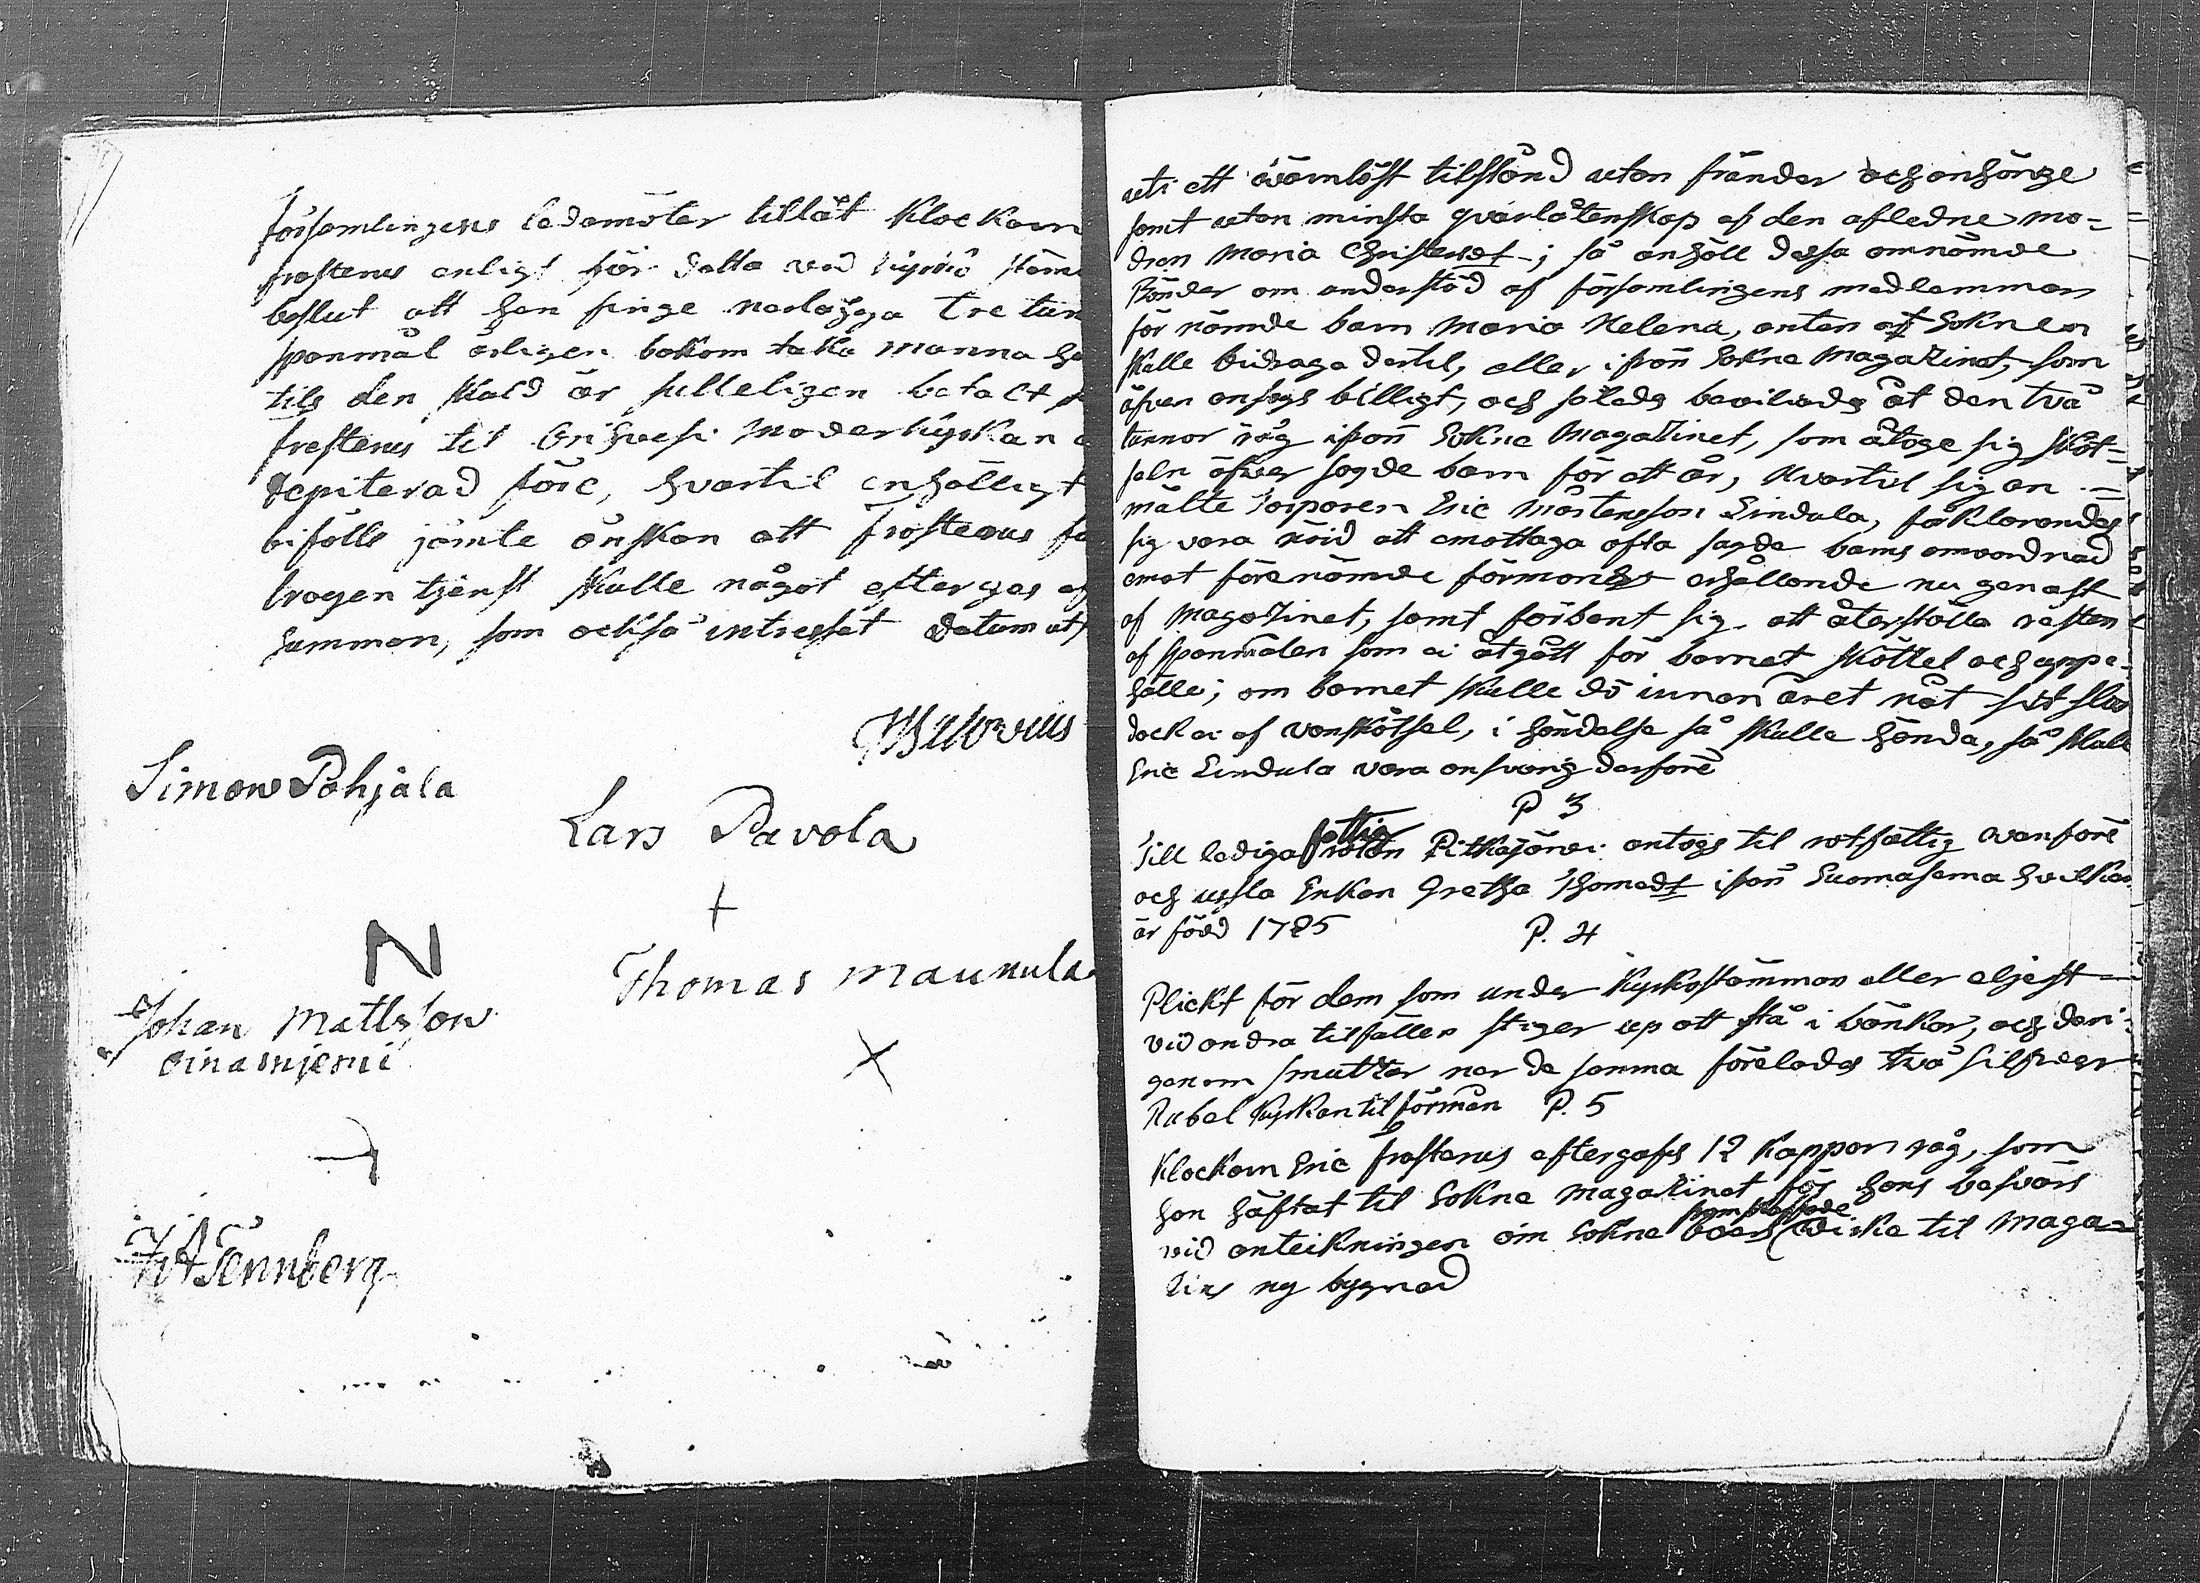 församlingens ledamöter tillät Klockarn
frosterus enligt för detta vid kyrko stäm
beslut att han finge nerlägga tre tun
spanmål årligen bakom taka manna ha
tils den skuld är fulleligen betalt
frosterus til Orihvesi Moderkyrkan
debiterad före, hvartil enhälligt
bifölls jämte önskan att frosterus fö
trogen tjenst skulle något eftergas af
summan, som också intresset datum ut
Simon Pohjala
Lars Pavola
+
N
Thomas Maunula
Johan Mattsson
oinasnjemi
X
Tennberg
uti ett värnlöst tilstånd utan fränder och anhörige
samt utan minsta qvarlåtenskap af den aflednemo=
dren Maria Christersdt; så anhöll dessa omnämde
Bönder om understöd af församlingens medlemmar
för nämde barn Maria Helena, anten at Soknen
skulle bidraga dertil, eller ifrån Sokne Magazinet, som
äfven ansågs billigt, och såleds beviliads åt den två
tunnor råg ifrån Sokne Magazinet, som åtoge sig sköt=
seln öfwer sagde barn för ett år, Hvartil sig an=
mälte Torparen Eric Mårtensson Lindula, förklarandes
sig vara nöjd att emottaga ofta sagde barns omvordnad
emot förenämde förmoners erhållande nu genast
af Magazinet, samt förbant sig att återställa resten
af spanmålen som ei åtgått för barnet skötsel och uppe=
hälle; om barnet skulle dö innan året nåt sit slut
dock ei af vanskötsel, i händelse så skulle hända, så skall
Eric Lindula vara ansvarig derföre
P 3
Till lediga fattig roten Pitkäjärvi antogs til rotfattig vanföre
och usla Enkan Gretha Thomasdt ifrån Suomasema hvilken
är född 1785
P. 4
Plickt för dem som under Kyrkostämman eller eljest
vid andra tilfällen stiger up att stå i bänkar, och deri=
genom smuttar ner de samma förelades två Silfwer
Rubel Kyrkan til förmån P. 5
Klockarn Eric frosterus eftergafs 12 Kappar råg, som
han häftat til Sokne Magazinet för hans besvärs
vid anteikningen om Sokne boers framskaffade virke til Maga=
zins ny bygnad